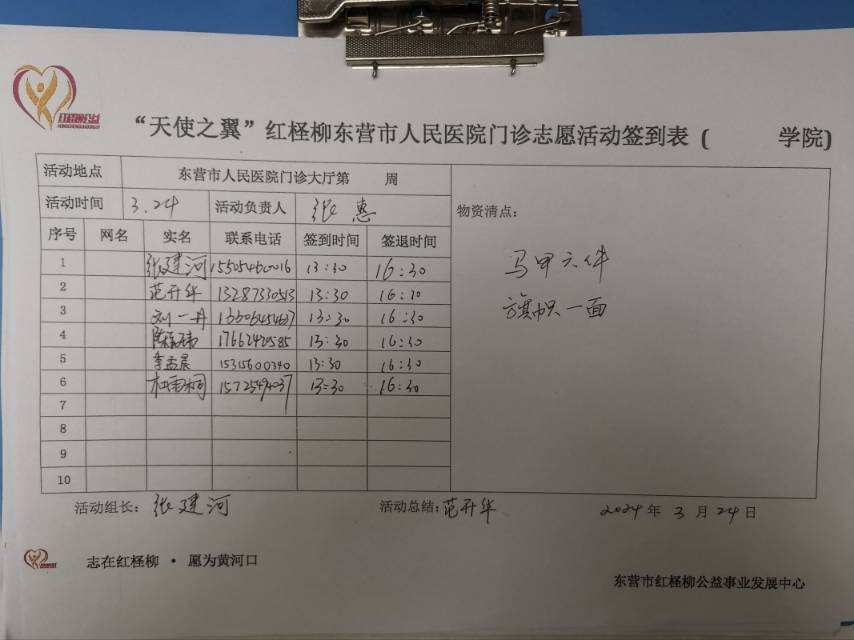 红柽柳公益
“天使之翼”红柽柳东营市人民医院门诊志愿活动签到表( 学院)
活动地点 东营市人民医院门诊大厅第 周
活动时间 3.24 活动负责人 张惠
物资清点：
序号 网名 实名 联系电话 签到时间 签退时间
1 张建河 15505460016 13:30 16:30
2 范升华 13287330513 13:30 16:30
3 刘一丹 13:30 16:30
4 17662420585 13:30 16:30
5 李孟晨 15315600340 13:30 16:30
6 13:30 16:30
7
8
9
10
马甲六件
旗帜一面
活动组长：张建河 活动总结：范升华 2024年3月24日
志在红柽柳 · 愿为黄河口
东营市红柽柳公益事业发展中心